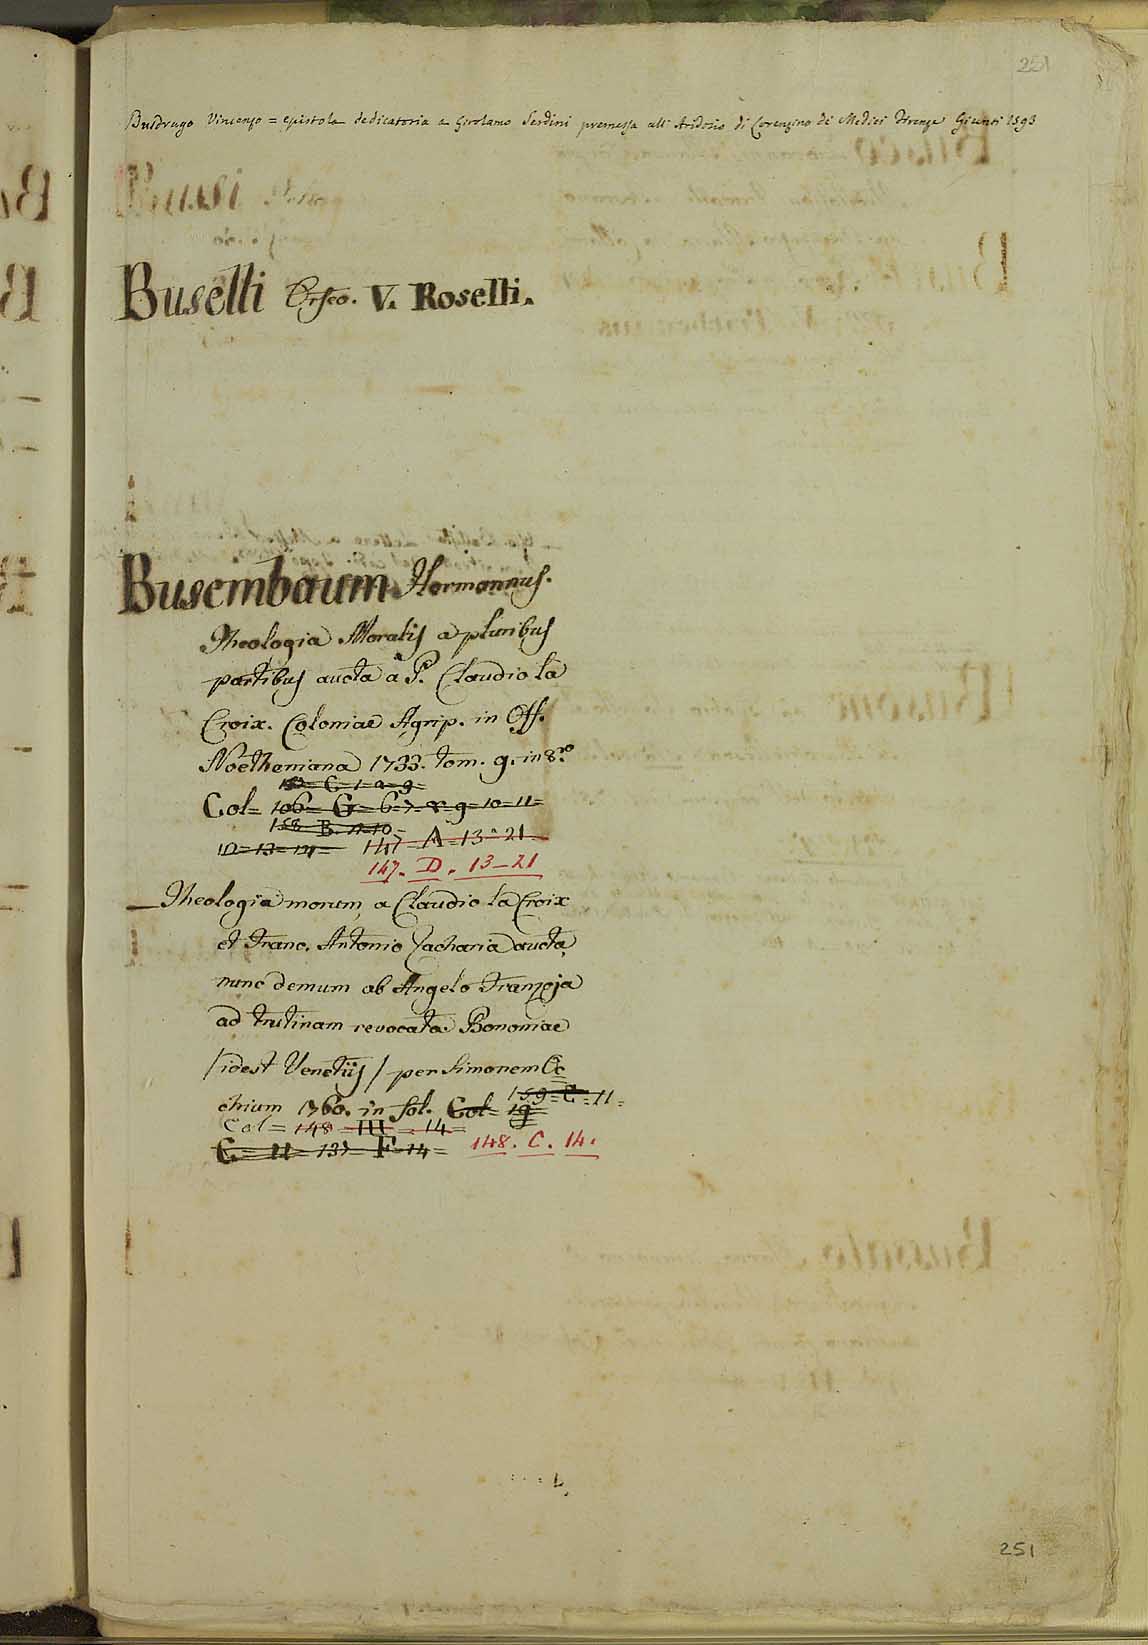 251
Busdrago Vincenzo = epistola dedicatoria a Girolamo Serdini premessa all' Aridosio di Lorenzino de Medici Firenze Giunti 1593
Busi
Buselli Orfeo. V. Roselli.
Busembaum Hermannus.
Theologia Moralis a pluribus
partibus aucta a P. Claudio la
Croix. Coloniae Agrip. in Off.
Noetheniana 1733. tom. 9. in 8.º
C = 1 a 9 =
Col = 106 = G = 6 = 7 = 8 = 9 = 10 = 11 =
158 B.
12 = 13 = 14 = 147 = A = 13 = 21
147. D. 13-21
— Theologia morum, a Claudio la Croix
et Franc. Antonio Zacharia aucta,
nunc demum ab Angelo Franzoja
ad trutinam revocata. Bononiae
/ idest Venetijs / per Simonem Oc
159 = C = 11 =
chium 1760. in fol. Col = 19
Col = 148 = III = 14 =
C = 11 = 137 = F = 14 = 148. C. 14.
251